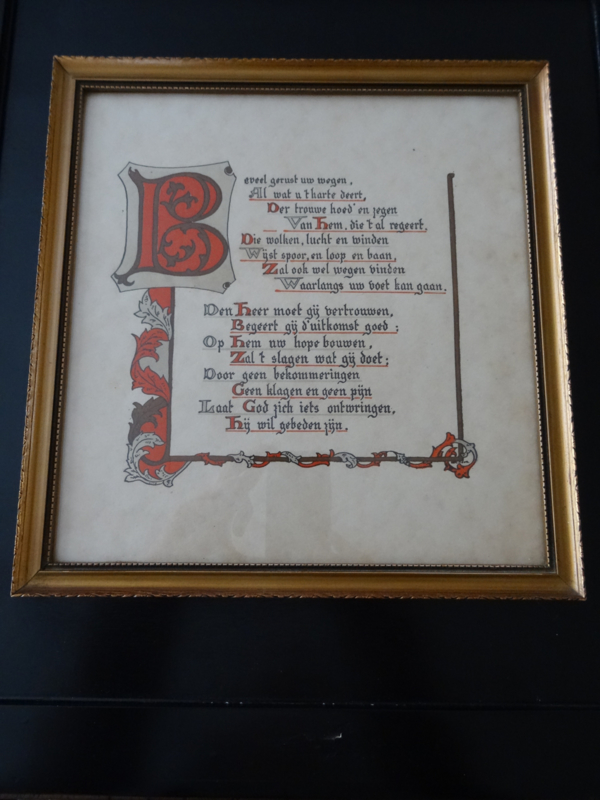 Beveel gerust uw wegen,
Al wat u 't harte deert,
Der trouwe hoed' en zegen
Van Hem, die 't al regeert,
Die wolken, lucht en winden
Wijst spoor, en loop en baan,
Zal ook wel wegen vinden
Waarlangs uw voet kan gaan.
Den Heer moet gij vertrouwen,
Begeert gij d'uitkomst goed;
Op Hem uw hope bouwen,
Zal 't slagen wat gij doet;
Door geen bekommeringen
Geen klagen en geen pijn
Laat God zich iets ontwringen,
Hij wil gebeden zijn.